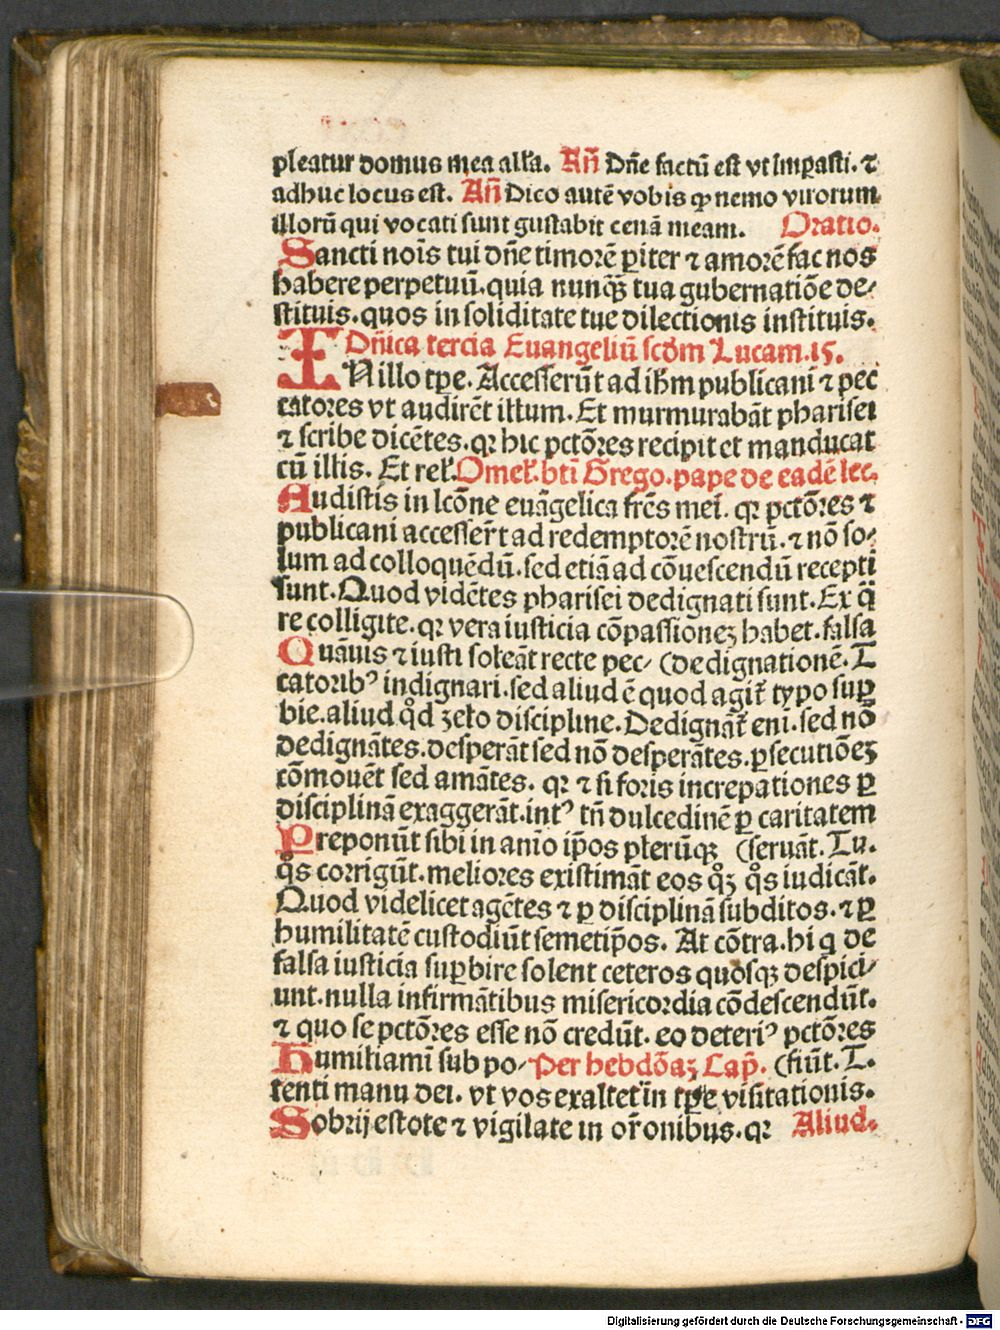 pleatur domus mea alľa. Añ Dñe factũ est vt imꝑasti. ⁊
adhuc locus est. Añ Dico autẽ vobis ꝙ nemo virorum
illorũ qui vocati sunt gustabit cenã meam. Oratio.
Sancti noĩs tui dñe timorẽ ꝑiter ⁊ amorẽ fac nos
habere perpetuũ. quia nunq̃ꝫ tua gubernatiõe de⸗
stituis. quos in soliditate tue dilectionis instituis.
Dñica tercia Euangeliũ scďm Lucam. 15.
IN illo tꝑe. Accesserũt ad ihm̃ publicani ⁊ pec
catores vt audirẽt illum. Et murmurabãt pharisei
⁊ scribe dicẽtes. qꝛ hic pctõres recipit et manducat
cũ illis. Et reľ. Omeľ. bti Grego. pape de eadẽ lec.
Audistis in lcõne euãgelica frẽs mei. qꝛ pctõres ⁊
publicani accesser̃t ad redemptorẽ nostrũ. ⁊ nõ so⸗
lum ad colloquẽdũ. sed etiã ad cõuescendũ recepti
sunt. Quod vidẽtes pharisei dedignati sunt. Ex q̃
re colligite. qꝛ vera iusticia cõpassioneꝫ habet. falsa
Quãuis ⁊ iusti soleãt recte pec⸗ (dedignationẽ. T
catoribꝰ indignari. sed aliud ẽ quod agit̃ typo suꝑ
bie. aliud q̊d zelo discipline. Dedignãt̃ eni. sed nõ
dedignãtes. desperãt sed nõ desperãtes. ꝑsecutiõeꝫ
cõmouẽt sed amãtes. qꝛ ⁊ si foris increpationes ꝑ
disciplinã exaggerãt. intꝰ tñ dulcedinẽ ꝑ caritatem
Preponũt sibi in anio ip̃os plerũqꝫ (seruãt. Tu.
q̊s corrigũt. meliores existimãt eos q̊ꝫ q̊s iudicãt.
Quod videlicet agẽtes ⁊ ꝑ disciplinã subditos. ⁊ ꝑ
humilitatẽ custodiũt semetip̃os. At cõtra. hi q de
falsa iusticia suꝑbire solent ceteros quosqꝫ despici⸗
unt. nulla infirmãtibus misericordia cõdescendũt.
⁊ quo se pctõres esse nõ credũt. eo deteriꝰ pctõres
Humiliamĩ sub po⸗ Per hebdõaꝫ Cap̃. (fiũt. T.
tenti manu dei. vt vos exaltet in tꝑe visitationis.
Sobrij estote ⁊ vigilate in or̃onibus. qꝛ Aliud.
Digitalisierung gefördert durch die Deutsche Forschungsgemeinschaft - DFG